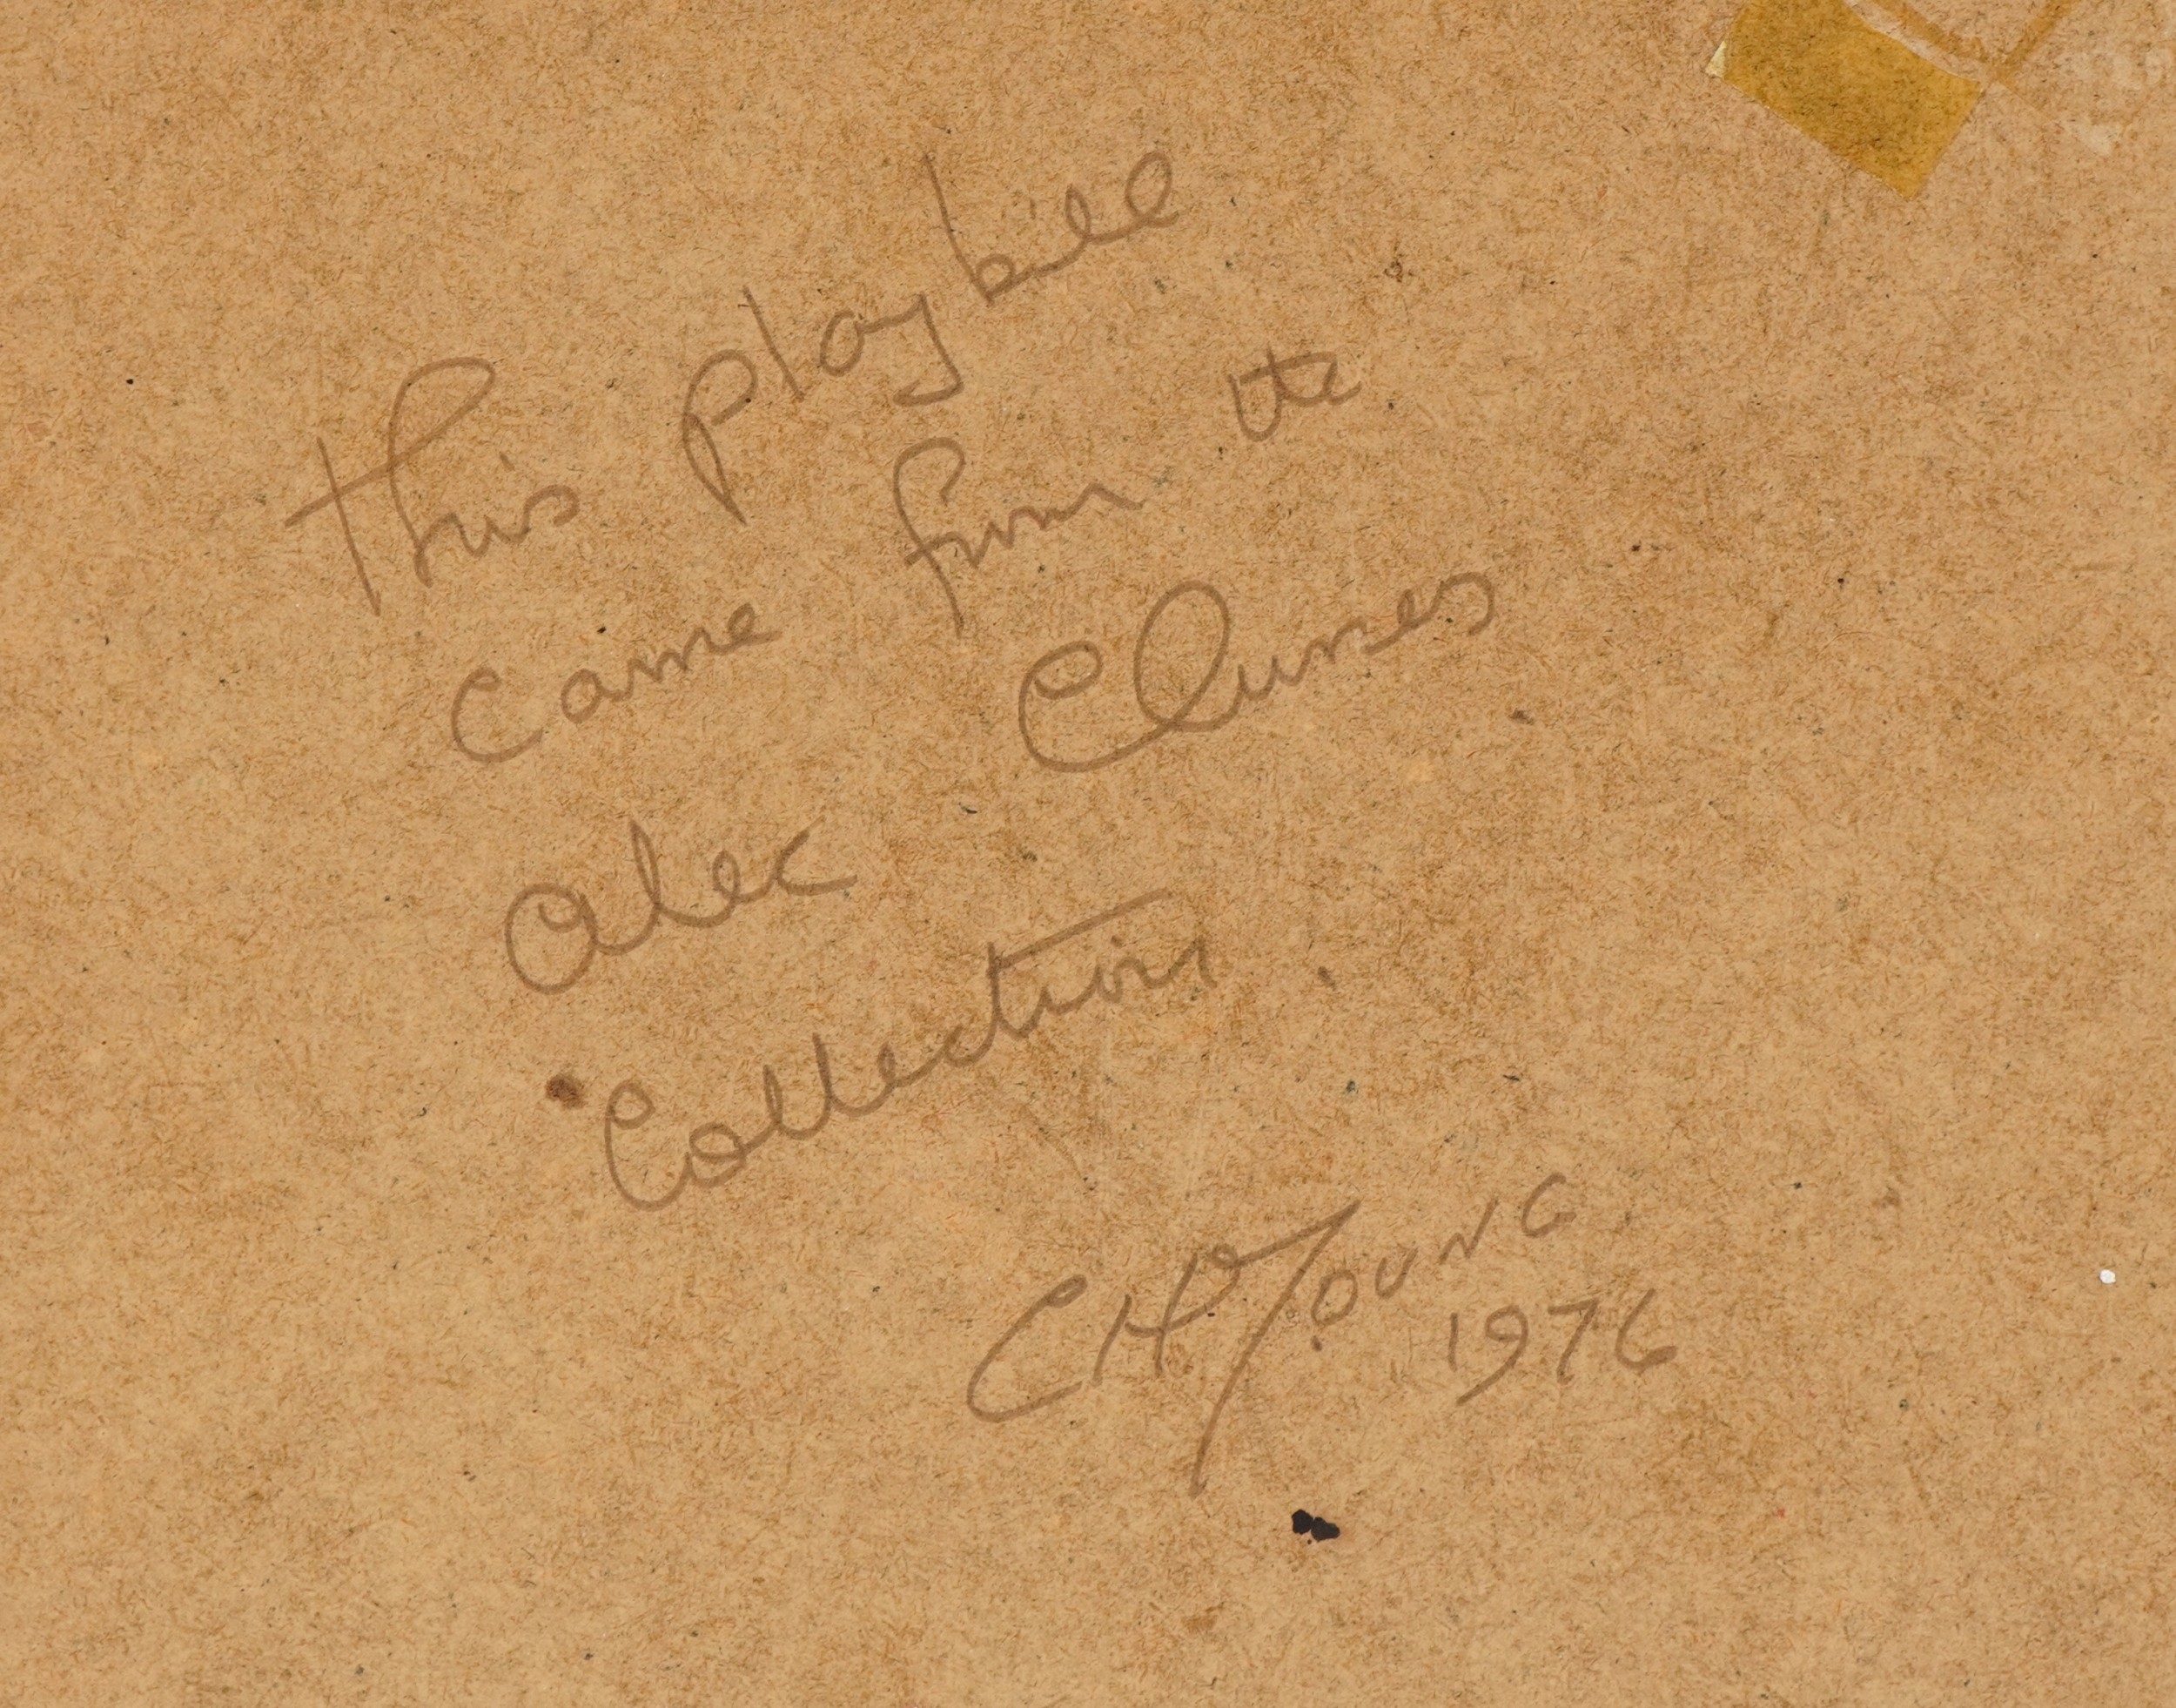 This playbill
came from the
Alec Clunes
Collection.
CH YOUNG
1976